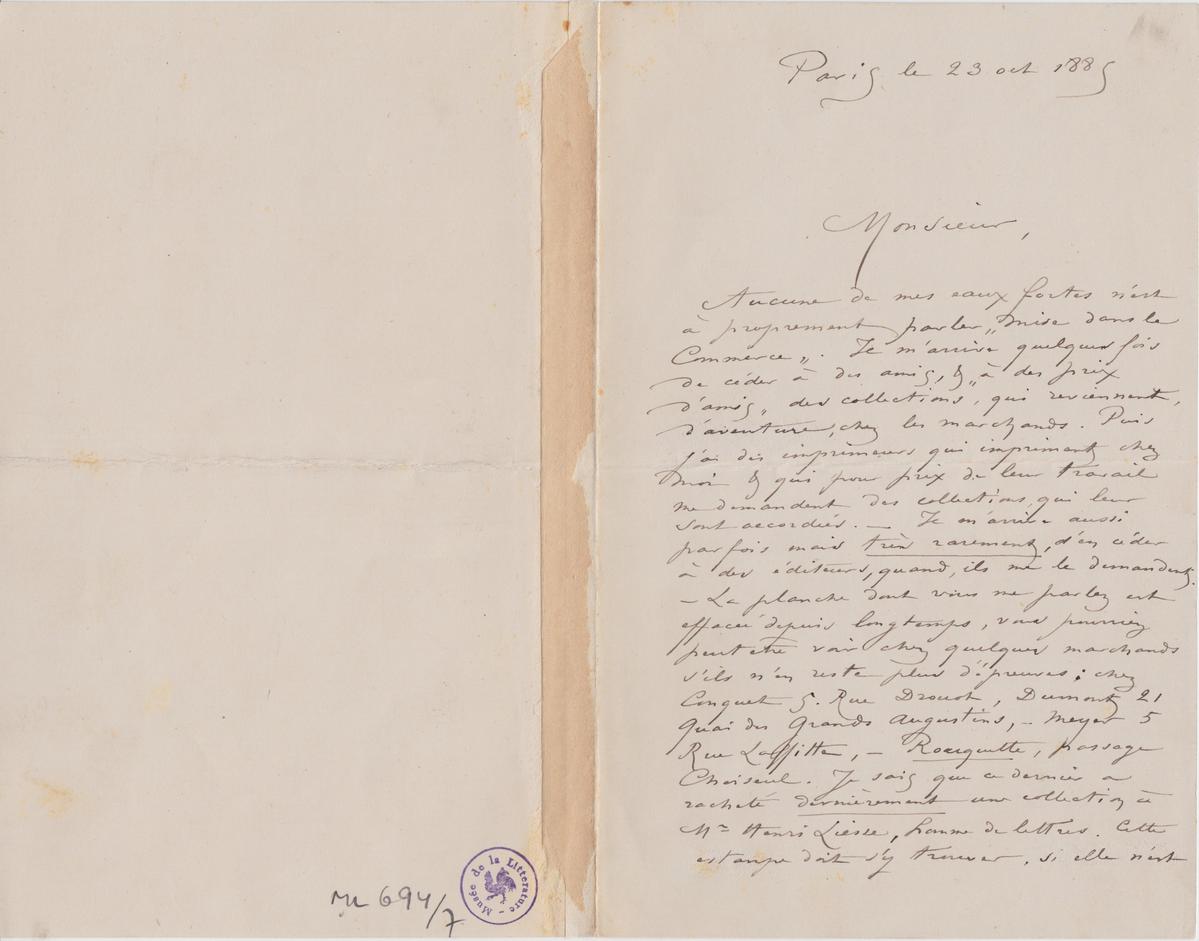 Paris le 23 oct 1885
Monsieur,
Aucune de mes eaux fortes n'est
à proprement parler „mise dans le
Commerce„. Il m'arrive quelques fois
de céder à des amis, & „à des prix
d'amis„ des collections, qui reviennent,
d'aventure, chez les marchands. Puis
j'ai des imprimeurs qui impriment chez
moi & qui pour prix de leur travail
me demandent des collections, qui leur
sont accordées. — Il m'arrive aussi
parfois mais très rarement, d'en céder
à des éditeurs, quand, ils me le demandent.
— La planche dont vous me parlez est
effacée depuis longtemps, vous pourriez
peut etre voir chez quelques marchands
s'ils n'en reste plus d'épreuves; chez
Conquet 5. Rue Drouot, Dumont 21
Quai des Grands Augustins, – Meyer 5
Rue Laffitte, – Rouquette, passage
Choiseul. Je sais que ce dernier a
racheté dernièrement une collection à
Mr Henri Liesse, homme de lettres. Cette
estampe doit s'y trouver, si elle n'est
ML 694/7
Musée de la Littérature